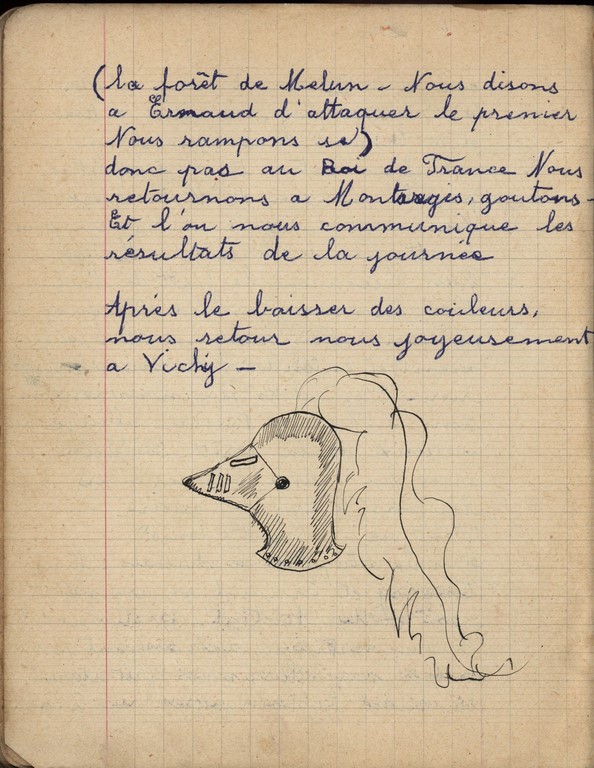 (la forêt de Melun - Nous disons
a Ermaud d'attaquer le premier
Nous rampons se)
donc pas au Roi de France Nous
retournons a Montargis, goutons -
Et l'ou nous communique les
résultats de la journée
Après le baisser des couleurs,
nous retour nous joyeusement
a Vichy -